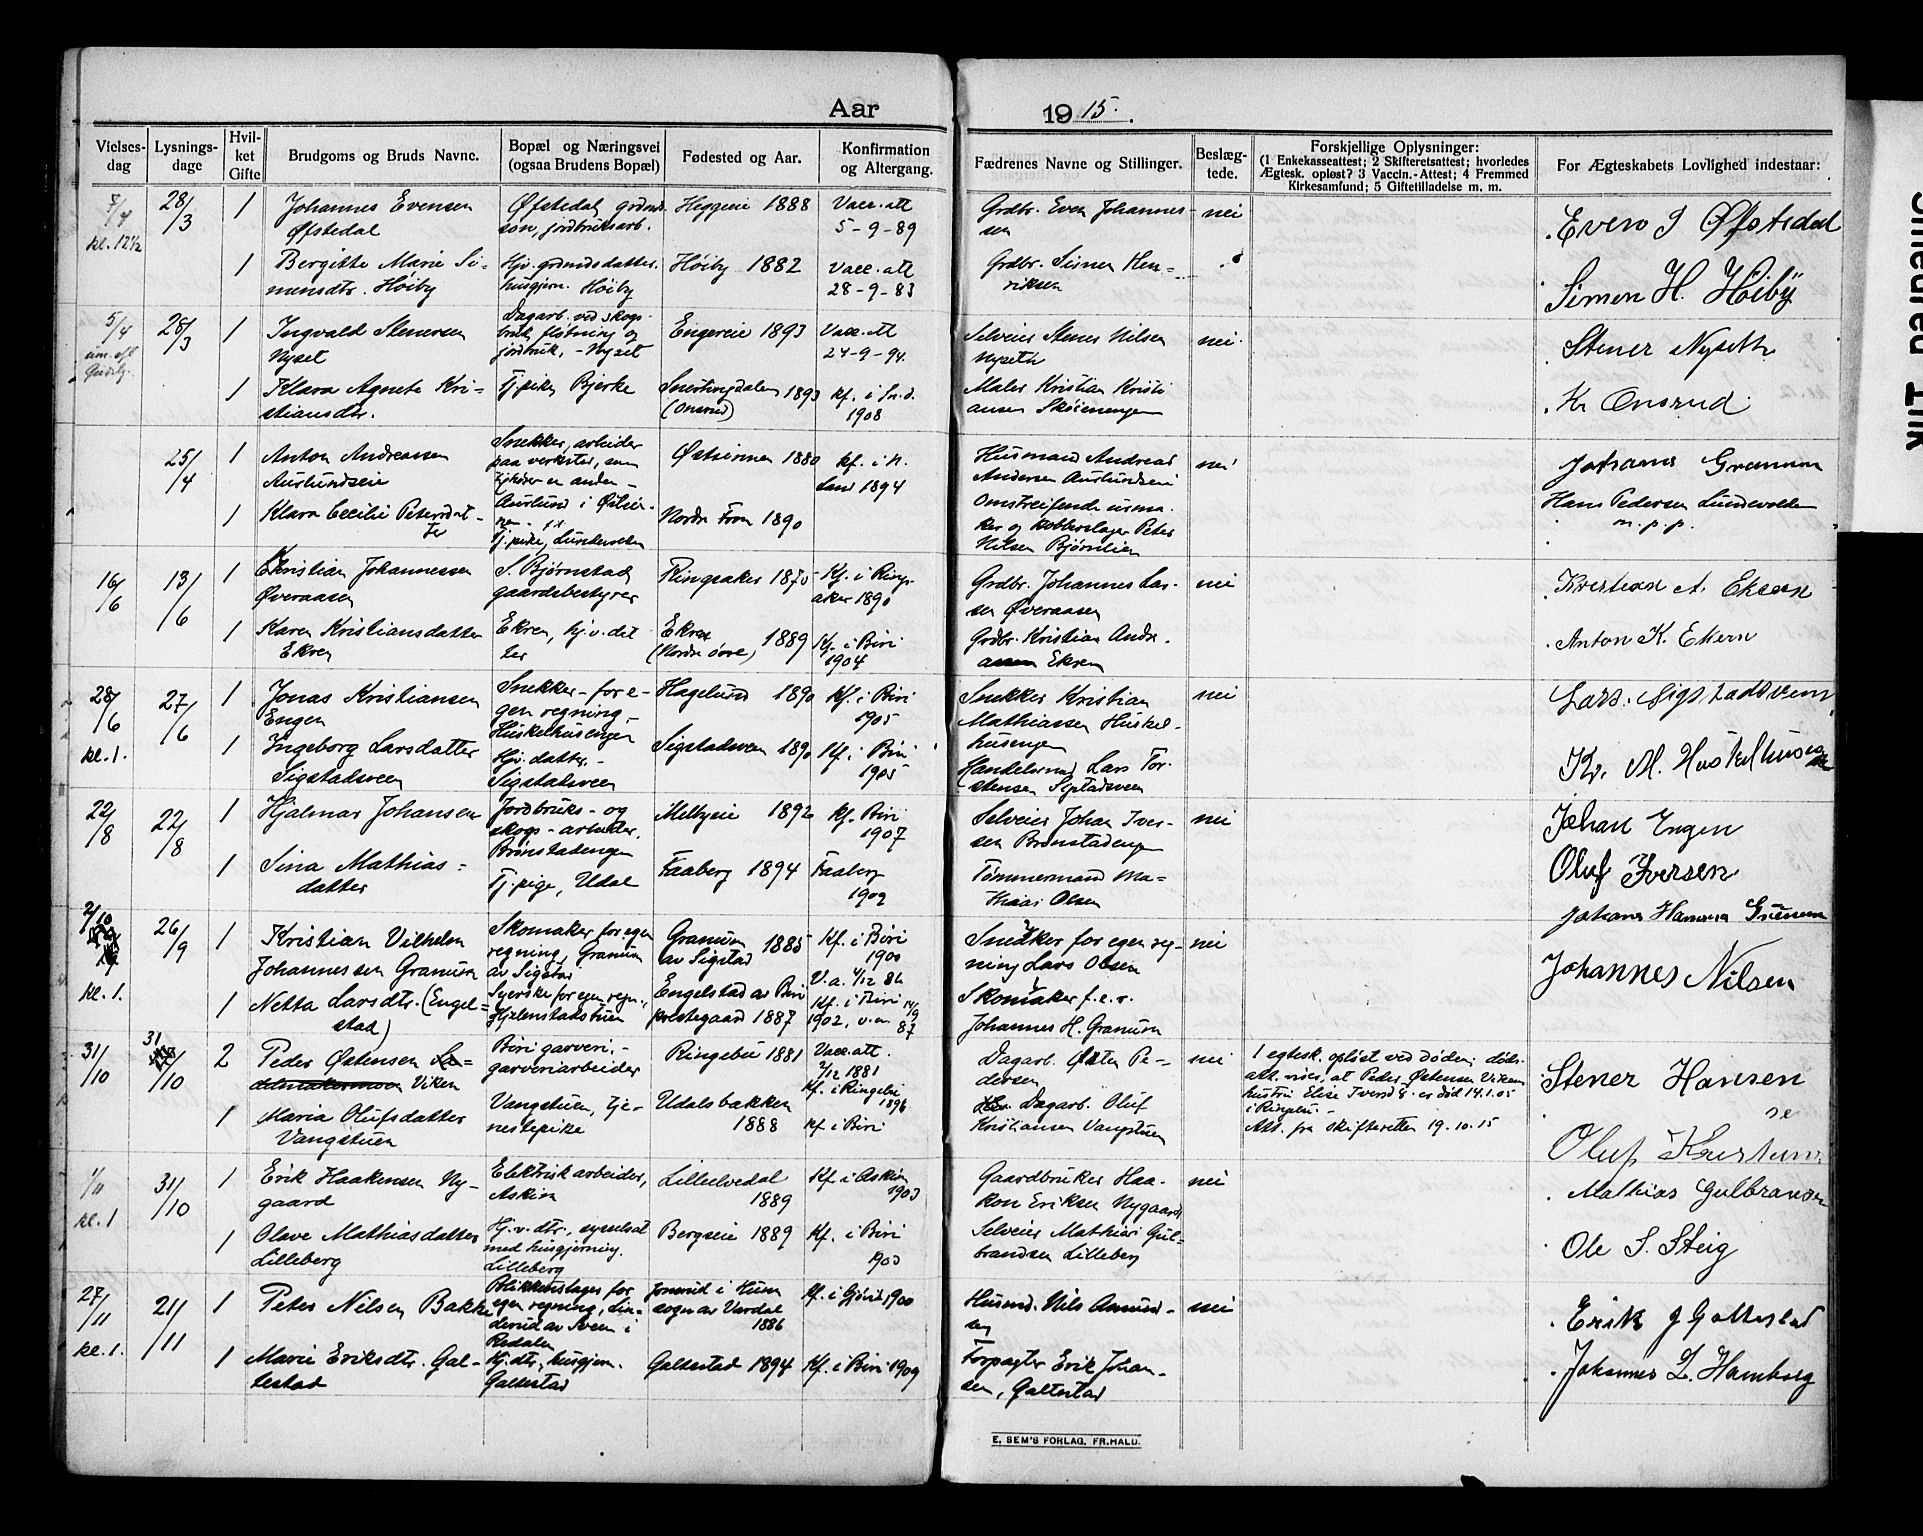 Aar
1915.
Vielses-
dag
Lysnings-
dage
Hvil-
ket
Gifte
Brudgoms og Bruds Navne.
Bopæl og Næringsvei
(ogsaa Brudens Bopæl)
Fødested og Aar.
Konfirmation
og Altergang.
Fædrenes Navne og Stillinger.
Beslæg-
tede.
Forskjellige Oplysninger:
(1 Enkekasseattest; 2 Skifteretsattest; hvorledes
Ægtesk. opløst? 3 Vaccin.-Attest; 4 Fremmed
Kirkesamfund; 5 Giftetilladelse m. m.
For Ægteskabets Lovlighed indestaar:
5/4
kl. 12½
28/3
1
Johannes Evensen
Øfstedal
Øfstedal, grdmds.
søn, jordbruksarb.
Heggeie 1888
Vacc. att
5-9-89
Grdbr. Even Johannes-
sen
nei
Even J Øfstedal
1
Bergitte Marie Si-
mensdtr. Høiby
husgjern. Høiby
Høiby 1882
Vacc. att
28-9-83
Grdbr. Simen Hen-
riksen
Simen H. Höiby
5/4
26/3
1
Ingvald Stenersen
Nyset
Dagarb. ved skogs-
bruk, fløtning og
jordbruk, - Nyset
Engereie 1893
Vacc. att
24-9-94.
Selveier Stener Nilsen
Nyseth
nei
Stener Nyseth
1
Klara Agnete Kri-
stiansdtr.
Tj.pike, Bjerke
Snertingdalen 1893
(Onsrud)
kf. i Sn.d.
1908
Maler Kristian Kristi
ansen Skøienengen
Kr Onsrud
25/4
1
Anton Andreassen
Aurlundseie
Snekker, arbeider
paa verksted, som
tjhører en anden -
Aurlund i Østsin-
nen.
Østsinnen 1880
kf. i N.
Land 1894
Husmand Andreas
Andersen Aurlundseie
nei
Johans Granum
1
Klara Cecilie Petersdat-
ter
Tj.pike, Lundevolden
Nordre Fron 1890
Omstreifende urma-
ker og kobberslager Peter
Nilsen Bjørnlien
Hans Pedersen Lundevolden
m. p. p.
16/6
13/6
1
Kristian Johannessen
Øveraasen
S. Bjørnstad
gaardsbestyrer
Ringsaker 1875
Kf. i Rings-
aker 1890
Grdbr. Johannes Lar-
sen Øveraasen
nei
Kristian A. Ekern
1
Karen Kristiansdatter
Ekren
Ekren, hj.v. dat
ter
Ekren 1889
(Nordre øvre)
Kf. i Biri
1904
Grdbr. Kristian Andr.
assen Ekren
Anton K. Ekern
28/6
kl. 1.
27/6
1
Jonas Kristiansen
Engen
Snekker - for e-
gen regning, -
Huskelhusengen
Hagelund 1890
Kf. i Biri
1905
Snekker Kristian
Mathiassen Huskel-
husengen
nei
Lars. Sigstadsveen
1
Ingeborg Larsdatter
Sigstadsveen
Hjv. datter. -
Sigstadsveen
Sigstadsveen 1890
Kf. i Biri
1905
Handelsmd Lars Tor-
stensen Sigstadsveen
Kr. M. Huskelhusengen
22/8
22/8
1
Hjalmar Johansen
Jordbruks- og
skogs-arbeider,
Brønstadengen
Melbyeie 1892
kf. Biri
1907
Selveier Johan Iver-
sen Brønstadengen
nei
Johan Engen
1
Sina Mathias-
datter
Tj.pige, Udal
Faaberg 1894
Faaberg
1909
Tømmermand Ma-
thias Olsen
Oluf Iversen
2/10
kl. 1.
26/9
1
Kristian Vilhelm
Johannessen Granum
Skomaker for egen
regning, Granum
av Sigstad
Granum 1885
av Sigstad
Kf. i Biri
1900
V.a. 4/12 86
Snedker for egen reg-
ning Lars Olsen
nei
Johans Hansen Granum
1
Netta Larsdtr. (Engel-
stad)
Syerske for egen regn.,
Hjelmstadstuen
Engelstad av Biri
prestegaard 1887
Kf. i Biri
1902, v.a. 14/9 87
Skomaker f.e.r.
Johannes H. Granum
Johannes Nilsen
31/10
31/10
2
Peder Østensen
Viken
Biri garveri, -
garveriarbeider
Ringebu 1881
Vacc. att.
2/12 1881
Kf. i Ringebu
1896
Dagarb. Østen Pe-
dersen
nei
1 egtesk. opløst ved døden; døds-
att. viser, at Peder Østensen Vikens
hustru Elise Iversd. er død 14.1.05
i Ringebu. -
Att. fra skifteretten 19.10.15
Stener Hansen
1
Maria Olufsdatter
Vangstuen
Vangstuen, tje-
nestepike
Udalsbakken
1888
Kf. i Biri
Dagarb. Oluf
Kristiansen Vangstuen
Oluf Kristiansen
1/11
kl. 1
31/10
1
Erik Haakensen Ny-
gaard
Elektrisk arbeider,
Askim
Lilleelvedal
1889
Kf. i Askim
1903
Gaardbruker Haa-
kon Eriksen Nygaard
nei
Mathias Gulbransen
1
Olave Mathiasdatter
Lilleberg
Hj.v. dtr., sysselsat
med husgjerning.
Lilleberg
Bergseie 1889
Kf. i Biri
1903
Selveier Mathias Gul-
brandsen Lilleberg
Ole S. Steig
27/11
kl. 1.
21/11
1
Peter Nilsen Bakke
Blikkenslager for
egen regning, Lin-
derud av Sveen i
Redalen
Jonsrud i Hunn
sogn av Vardal
1886
Kf. i Gjøvik 1900
Husmd. Nils Amund-
sen
nei
Erik J Galterstad
1
Marie Eriksdtr. Gal-
terstad
Hj.dtr., husgjern.
Galterstad
Galterstad 1894
Kf. i Biri 1909
Forpagter Erik Johan-
sen, Galterstad
Johannes L. Hamborg
E. SEM'S FORLAG, FR.HALD.